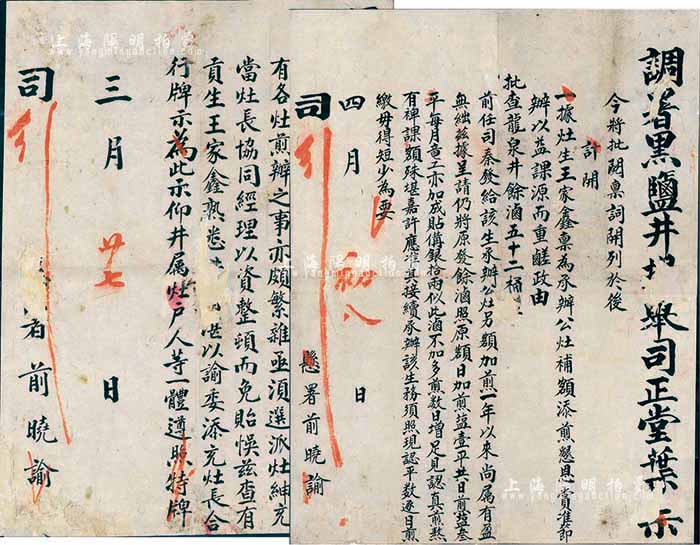 調署黑鹽井
舉司正堂葉示
今將批開稟詞開列於後
計開
一據灶生王家鑫稟為承辦公灶補額添煎懇恩賞准節
辦以益課源而重鹺政由
批查龍泉井餘滷五十二桶
前任司秦發給該生承辦公灶另額加煎一年以來尚屬有益
無絀茲據呈請仍將原發餘滷照原額日加煎鹽壹平共日煎鹽叁
平每月竟工亦加成貼傋銀拾兩似此滷不加多煎數日增足見認真煎熬
有裨課額殊堪嘉許應准其接續承辦該生務須照現認平數逐日煎
繳毋得短少為要
四月初八日
司
懸署前曉諭
有各灶煎辦之事亦頗繁雜亟須選派灶紳充
當灶長協同經理以資整頓而免貽悞茲查有
貢生王家鑫熟悉
以諭委添充灶長合
行牌示為此示仰井属灶户人等一體遵照特牌
三月廿七日
司
署前曉諭
上海陽明拍賣
www.yangmingauction.com
上海陽明拍賣
www.yangmingauction.com